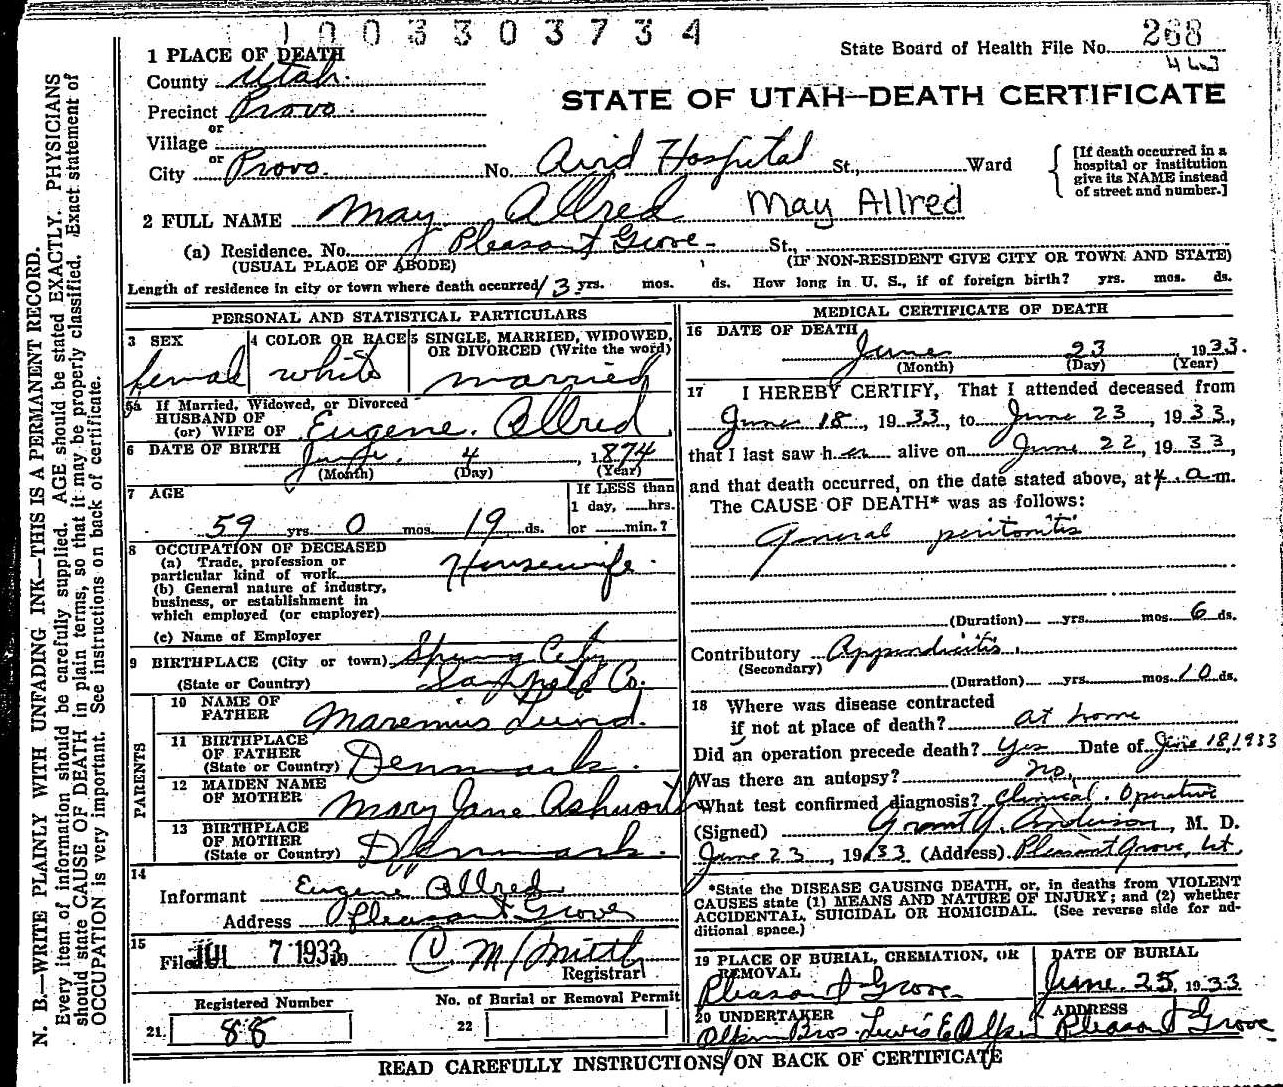 1003303734
State Board of Health File No. 268
463
1 PLACE OF DEATH
County Utah
STATE OF UTAH—DEATH CERTIFICATE
Precinct Provo
or
Village
or
City Provo. No. Aird Hospital St., Ward
[If death occurred in a hospital or institution give its NAME instead of street and number.]
2 FULL NAME May Allred May Allred
(a) Residence. No. Pleasant Grove St.,
(USUAL PLACE OF ABODE) (IF NON-RESIDENT GIVE CITY OR TOWN AND STATE)
Length of residence in city or town where death occurred 13 yrs. mos. ds. How long in U. S., if of foreign birth? yrs. mos. ds.
PERSONAL AND STATISTICAL PARTICULARS
3 SEX female
4 COLOR OR RACE white
5 SINGLE, MARRIED, WIDOWED, OR DIVORCED (Write the word) married
5a If Married, Widowed, or Divorced
HUSBAND OF
(or) WIFE OF Eugene Allred
6 DATE OF BIRTH 4, 1874
(Month) (Day) (Year)
7 AGE
59 yrs. 0 mos. 19 ds.
If LESS than 1 day, hrs. or min.?
8 OCCUPATION OF DECEASED
(a) Trade, profession or particular kind of work Housewife
(b) General nature of industry, business, or establishment in which employed (or employer)
(c) Name of Employer
9 BIRTHPLACE (City or town) Spring City
(State or Country) Sanpete Co.
PARENTS
10 NAME OF FATHER Maremius Lund.
11 BIRTHPLACE OF FATHER (State or Country) Denmark.
12 MAIDEN NAME OF MOTHER Mary Jane Ashworth
13 BIRTHPLACE OF MOTHER (State or Country) Denmark.
14
Informant Eugene Allred
Address Pleasant Grove
15
Filed JUL 7 1933 Registrar
Registered Number
21. 88
No. of Burial or Removal Permit
22
MEDICAL CERTIFICATE OF DEATH
16 DATE OF DEATH
June 23 1933.
(Month) (Day) (Year)
17 I HEREBY CERTIFY, That I attended deceased from
June 18, 1933, to June 23, 1933,
that I last saw her alive on June 22, 1933,
and that death occurred, on the date stated above, at 4 a.m.
The CAUSE OF DEATH* was as follows:
General peritonitis
(Duration) yrs. mos. 6 ds.
Contributory Appendicitis.
(Secondary)
(Duration) yrs. mos. 10 ds.
18 Where was disease contracted
if not at place of death? at home
Did an operation precede death? Yes Date of June 18, 1933
Was there an autopsy? no
What test confirmed diagnosis? Clinical. Operative
(Signed) Grant Y. Anderson, M. D.
June 23, 1933 (Address) Pleasant Grove, Ut.
*State the DISEASE CAUSING DEATH, or, in deaths from VIOLENT
CAUSES state (1) MEANS AND NATURE OF INJURY; and (2) whether
ACCIDENTAL, SUICIDAL OR HOMICIDAL. (See reverse side for additional space.)
19 PLACE OF BURIAL, CREMATION, OR REMOVAL
Pleasant Grove
DATE OF BURIAL
June 25, 1933
20 UNDERTAKER
Olpin Bros. Lewis E Olpin
ADDRESS
Pleasant Grove
READ CAREFULLY INSTRUCTIONS ON BACK OF CERTIFICATE
N. B.—WRITE PLAINLY WITH UNFADING INK—THIS IS A PERMANENT RECORD.
Every item of information should be carefully supplied. AGE should be stated EXACTLY. PHYSICIANS
should state CAUSE OF DEATH in plain terms, so that it may be properly classified. Exact statement of
OCCUPATION is very important. See instructions on back of certificate.